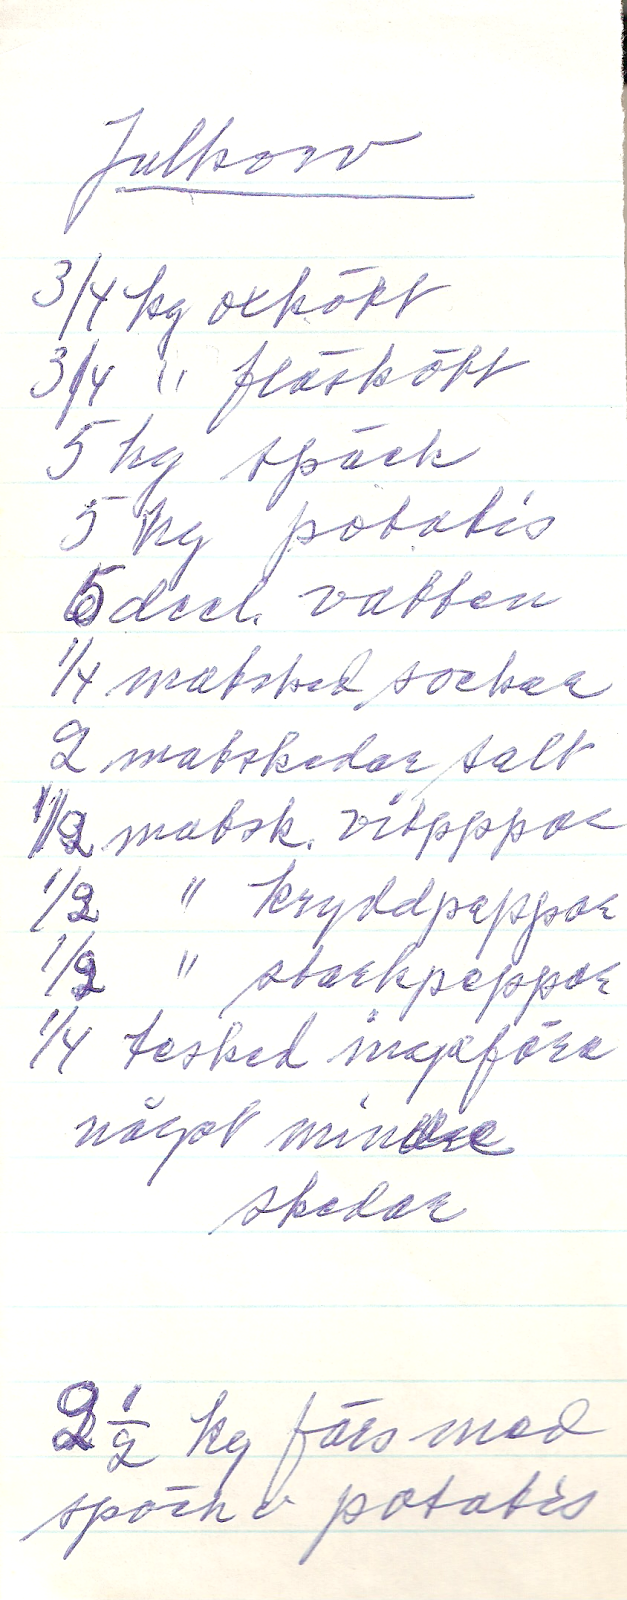 Julkorv
3/4 kg oxkött
3/4 " fläskött
5 kg späck
5 kg potatis
5 decl. vatten
1/4 matsked socker
2 matskedar salt
1/2 matsk. vitpppar
1/2 " kryddpeppar
1/2 " starkpeppar
1/4 tesked ingefära
något mindre
skedar
2 1/2 kg färs med
späck o potatis